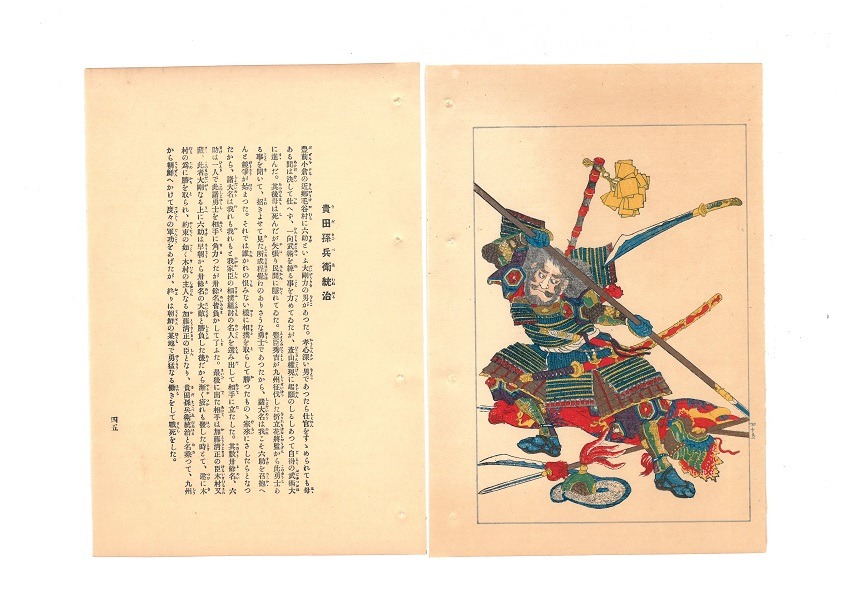 貴田孫兵衛統治
豊前小倉の近郷毛谷村に六助といふ大剛力の男があつた。孝心深い男であつたら仕官をすゝめられても母
ある間は決して仕へず、一向武術を練る事を力めてゐたが、彦山権現に起願のしるしあつて自得の武術大
に進んだ。其後母は死んだが矢張り民間に隠れてゐた。豊臣秀吉が九州征伐した折立花将監から此勇士あ
る事を聞いて、招きよせて見た所成程聲わのありさうな勇士であつたから、諸大名は我こそ六助を召抱へ
んと競争が始まつた。それでは誰かれの恨みない様に相撲を取らして勝つたものゝ家来にさしたらとなつ
たから、諸大名は我れも我れもと我家臣の相撲組討の名人を選み出して相手に立たした。其数卅餘名、六
助は一人で此諸勇士を相手に角力つたが卅餘名皆負かして了ふた。最後に出た相手は加藤清正の臣木村又
蔵、此者大剛なる上に六助は早朝から卅餘名の大敵と勝負した後だから漸く疲れも發した時とて、遂に木
村の為に勝を取られ、約束の如く木村の主人なる加藤清正の臣となり、貴田孫兵衛統治と名乗つて、九州
から朝鮮へかけて度々の軍功をあげたが、終りは朝鮮の某地で勇猛なる働きをして戦死をした。
四五